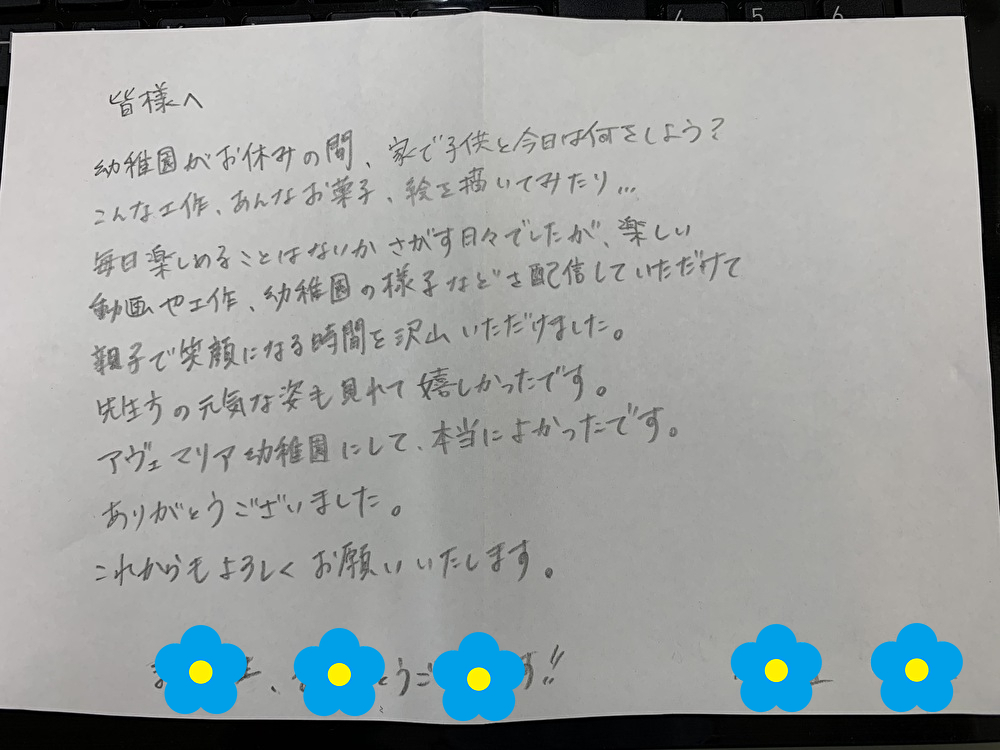 4 5 6
皆様へ
幼稚園がお休みの間、家で子供と今日は何をしよう?
こんな工作、あんなお菓子、絵を描いてみたり…
毎日楽しめることはないかさがす日々でしたが、楽しい
動画や工作、幼稚園の様子などを配信していただけて
親子で笑顔になる時間を沢山いただけました。
先生方の元気な姿も見れて嬉しかったです。
アヴェマリア幼稚園にして、本当によかったです。
ありがとうございました。
これからもよろしくお願いいたします。